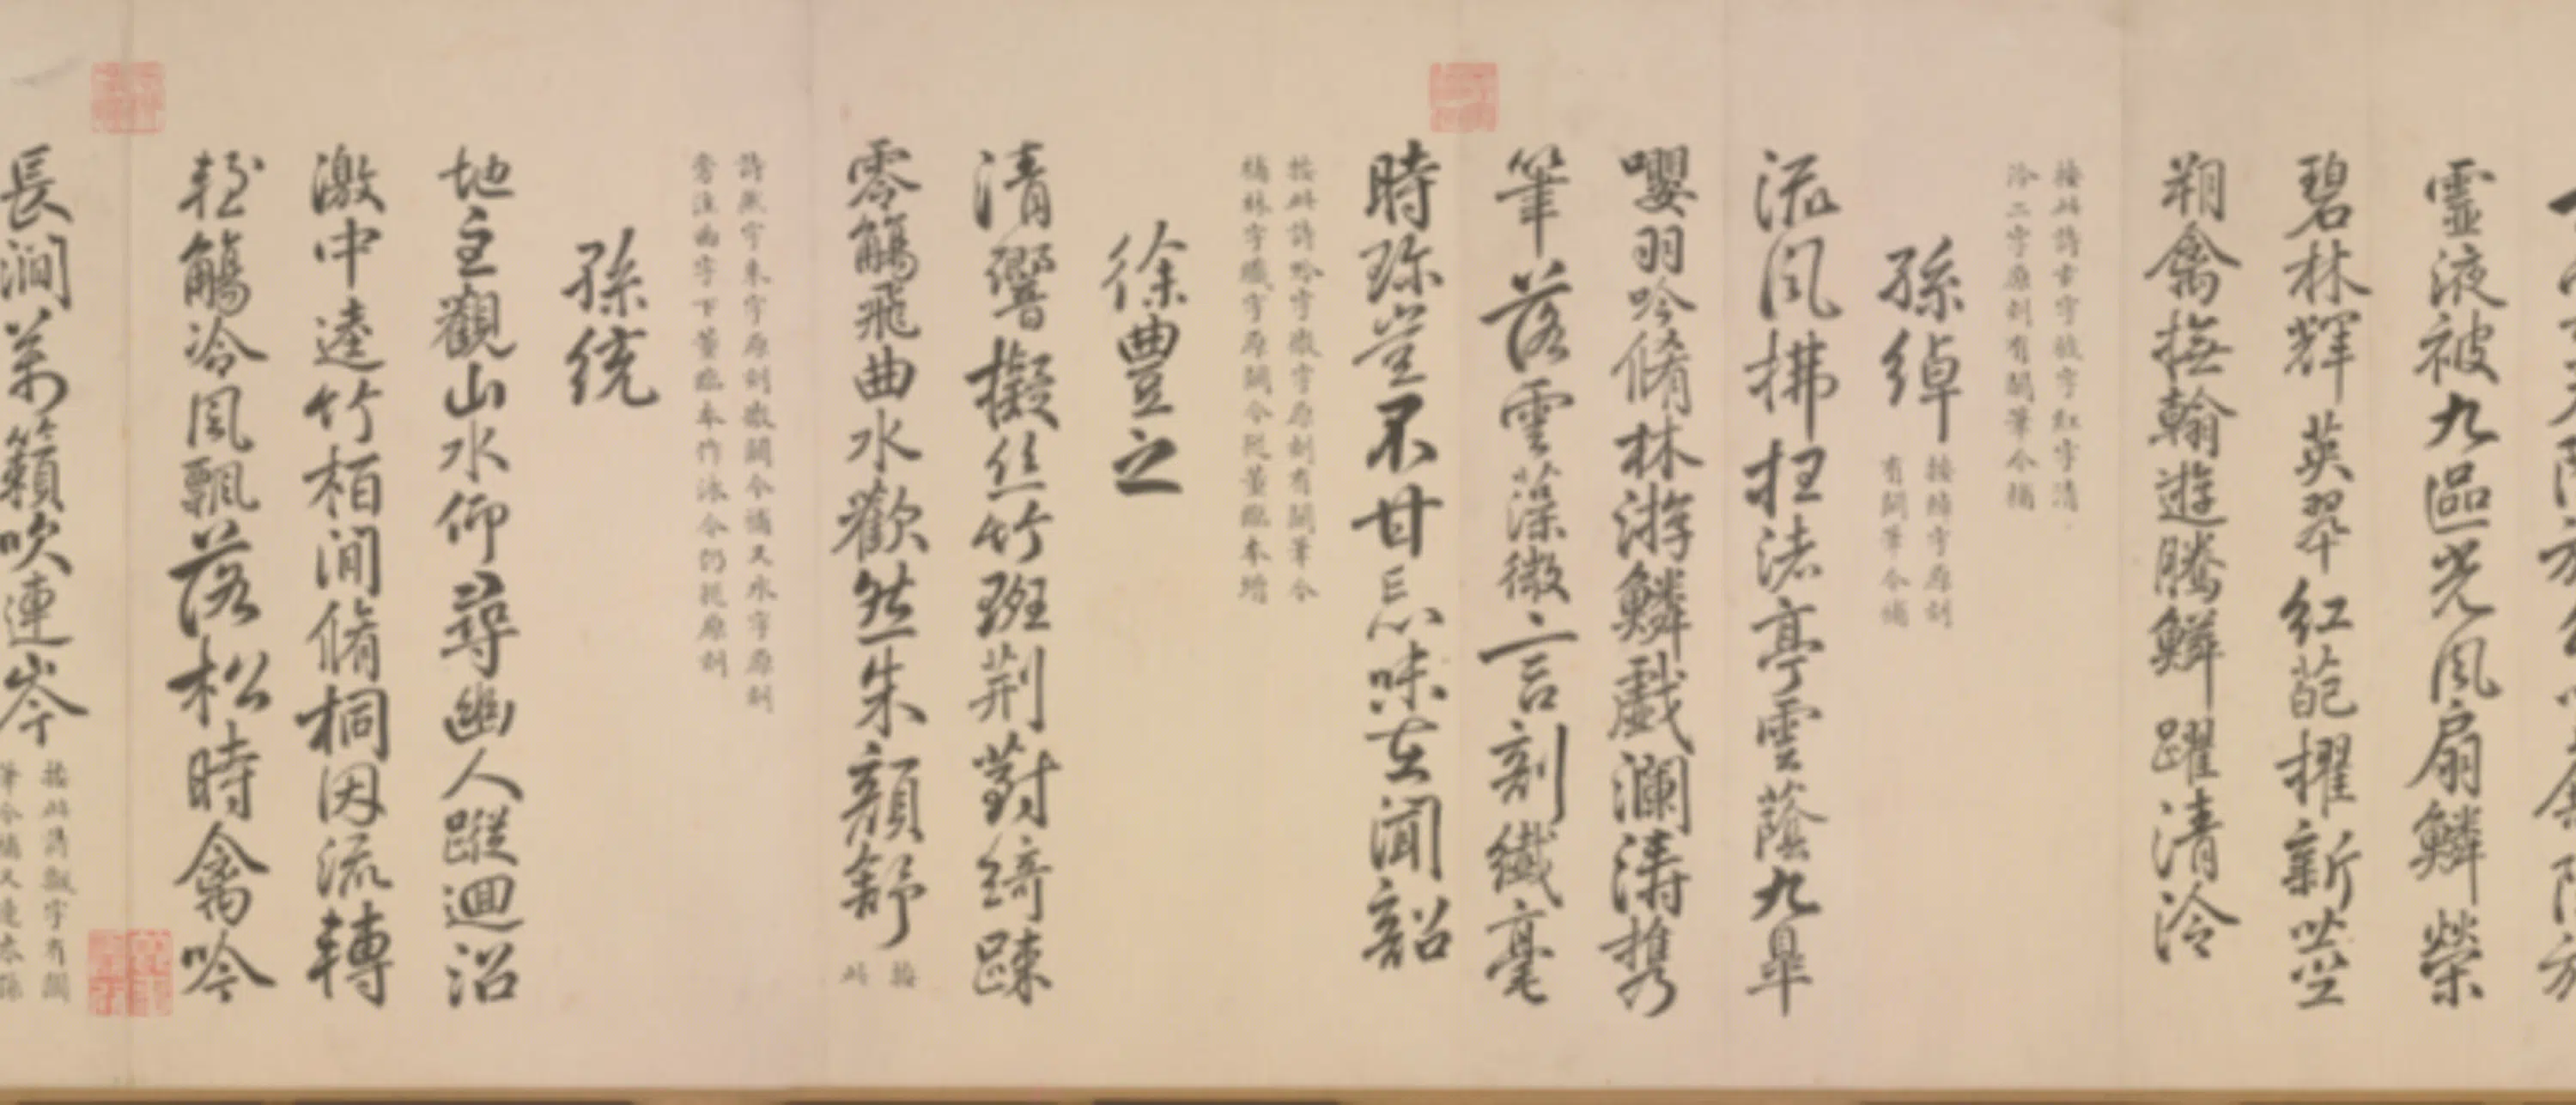 靈液被九區光風扇鱗榮
碧林輝英翠紅葩擢新莖
翔禽撫翰遊騰鱗躍清泠
按此詩章字被字紅字清
泠二字原刻有闕筆今補
孫綽
按綽字原刻
有闕筆今補
流風拂枉渚亭雲蔭九皋
嚶羽吟脩林游鱗戲瀾濤攜
筆落雲藻微言剖纖毫
時珍豈不甘忘味在聞韶
按此詩吟字微字原刻有闕筆今
補林字纖字原闕今從董臨本增
徐豊之
清響擬絲竹班荊對綺疎
零觴飛曲水歡然朱顏舒
按
此
詩飛字朱字原刻微闕今補又水字原刻
旁注曲字下董臨本作泳今仍從原刻
孫統
地主觀山水仰尋幽人蹤迴沼
激中逵竹栢澗脩桐因流轉
輕觴冷風飄落松時禽吟
長澗萬籟吹連岑
按此詩飄字有闕